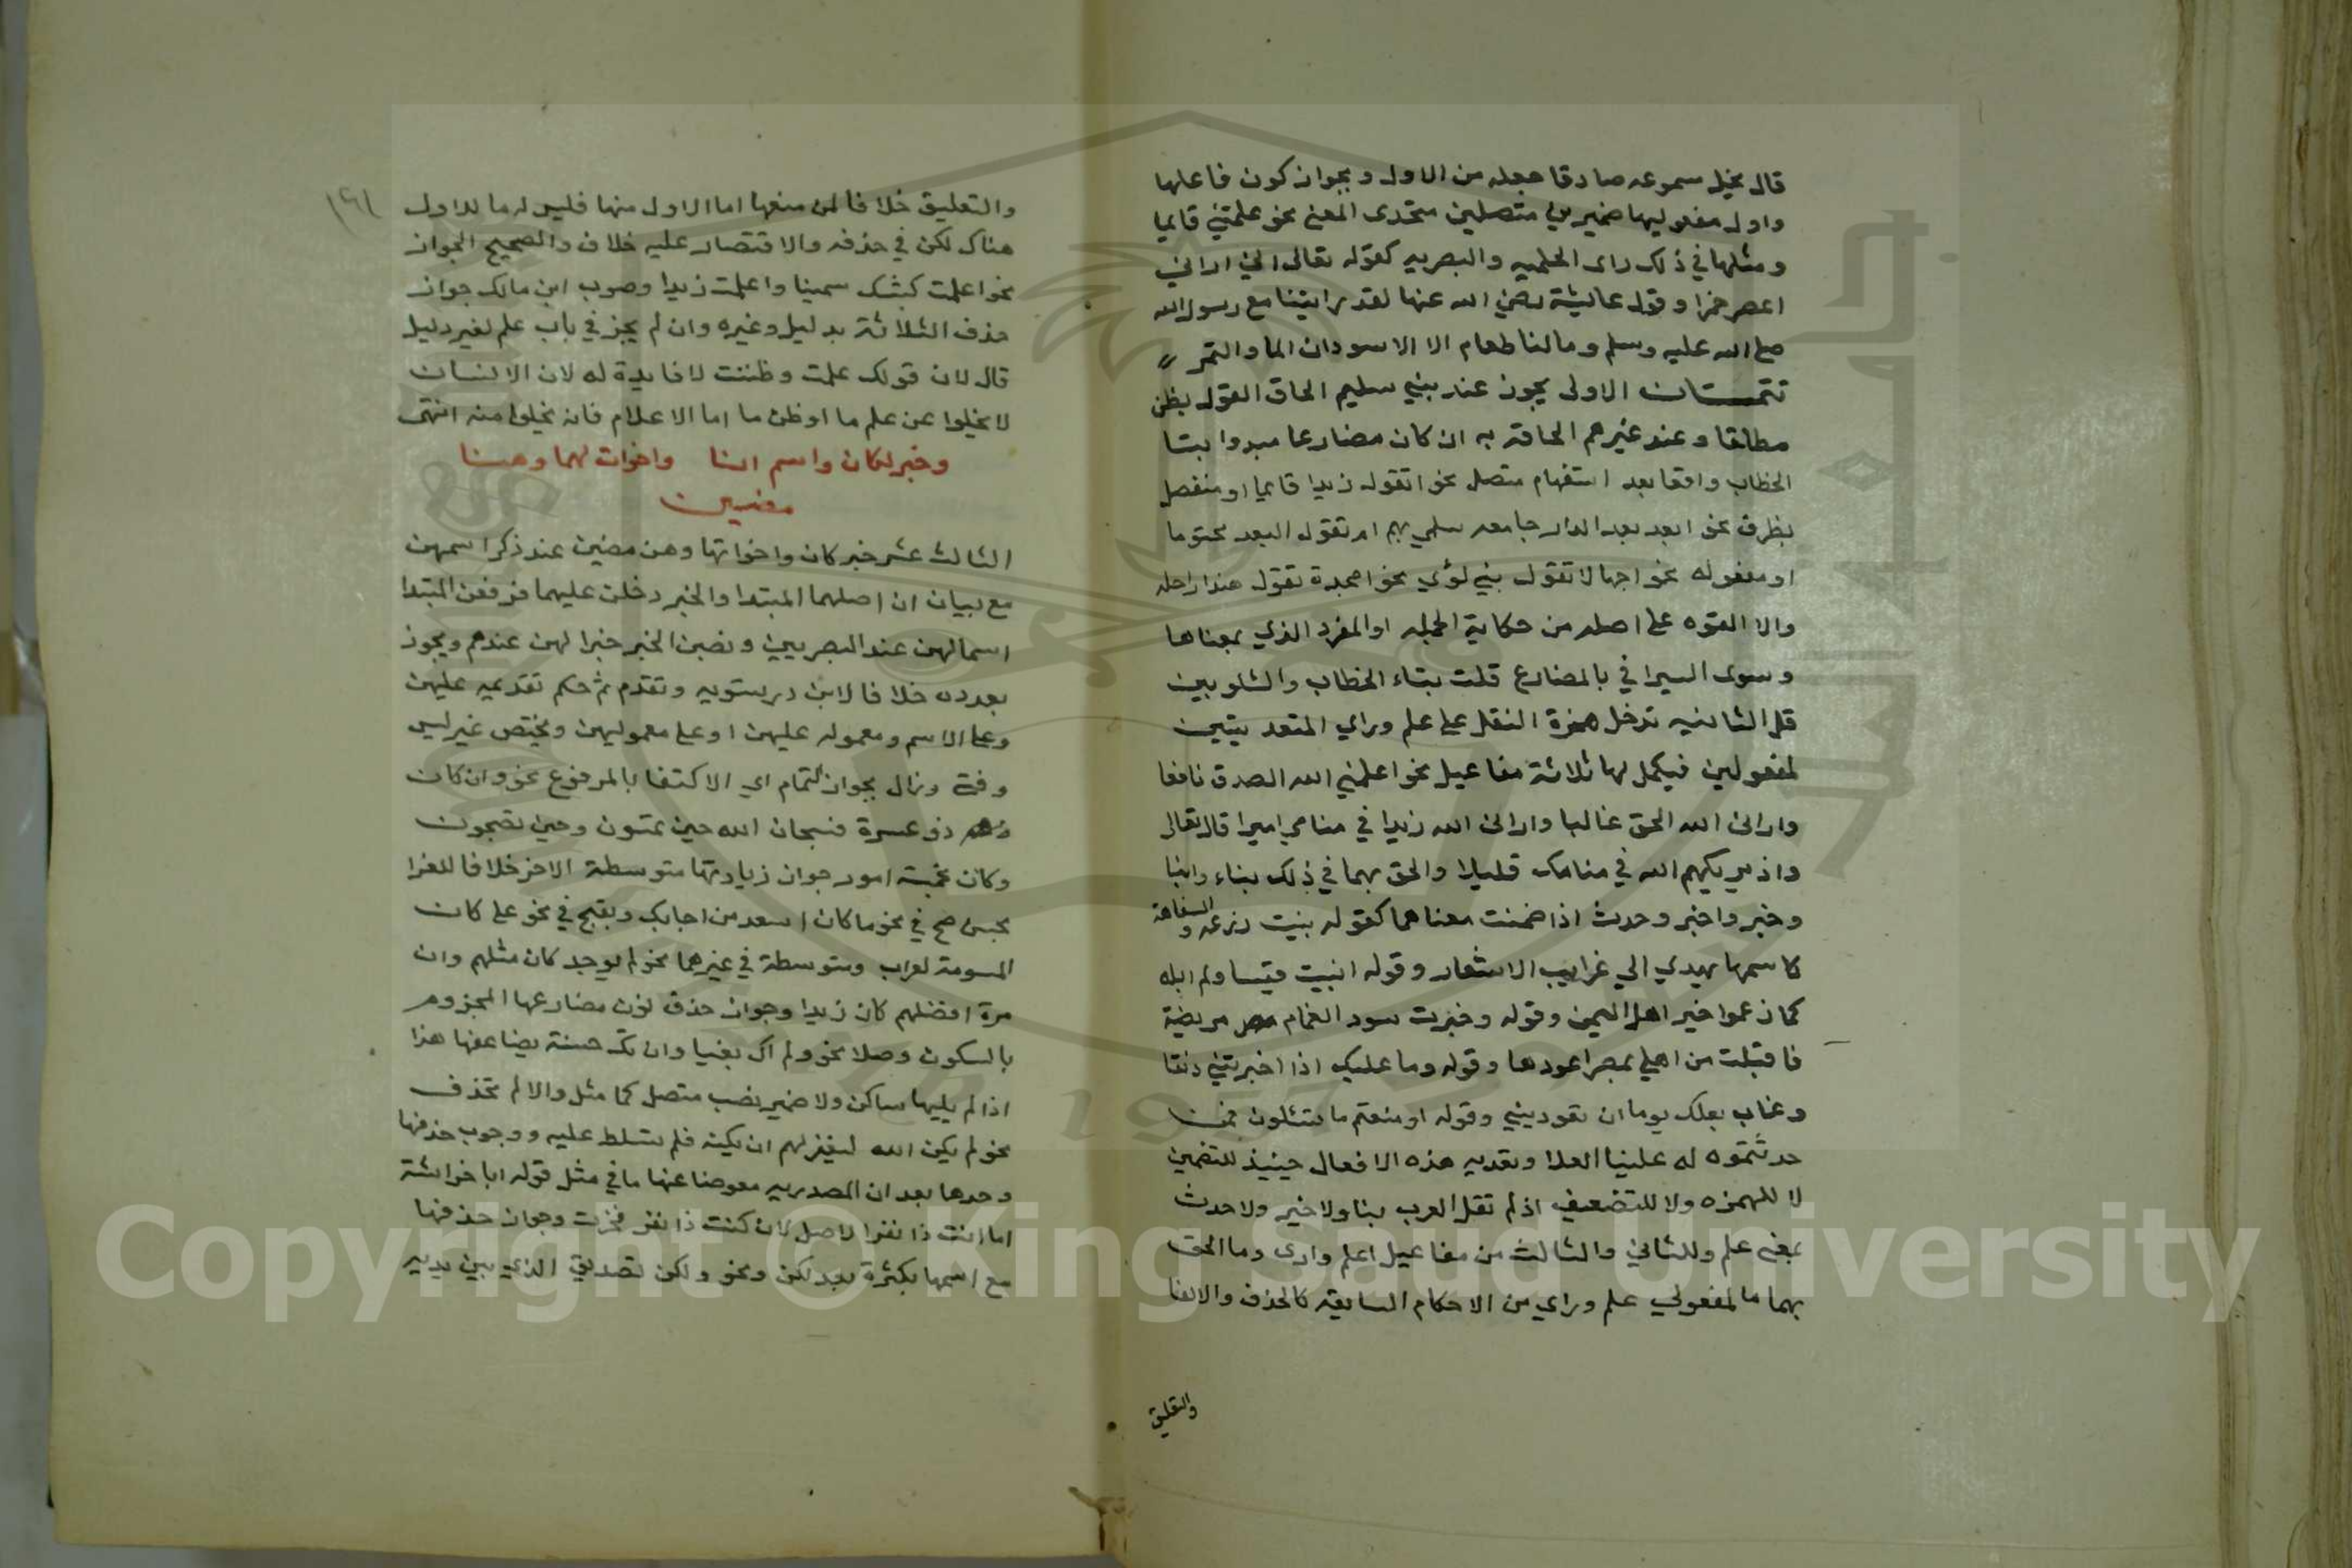 قال يخيل سموعه صادقا جعله من الاول وبجواز كون فاعلها
واول مفعوليها ضميرين متصلين متحدى المعنى نحو علمتني قايما
ومثلها في ذلك راى الحلميه والبصريه كقوله تعالى اني اراني
اعصر خمرا وقول عائيشة رضي الله عنها لقد رايتنا مع رسول الله
صلى الله عليه وسلم وما لنا طعام الا الاسودان الما والتمر
تتمستان الاولى يجوز عند بني سليم الحاق القول بظن
مطلقا وعند غيرهم الحاقه به ان كان مضارعا مبدوا بتا
الخطاب واقعا بعد استفهام متصل نحو اتقول زيدا قايما او منفصل
بظرف نحو ابعد بعد الدار جامعه سلمي بهم ام تقول البعد محتوما
او مفعوله نحو اجهالا تقول بني لؤي نحوا تقول هندا راحله
والا القوه على اصله من حكاية الجمله او المفرد الذي بمعناها
وسوى السيرافي بالمضارع قلت بتاء الخطاب والشلوبين
قل الثانيه تدخل همزة النقل على علم وراي المتعديتين
لمفعولين فيكمل لها ثلاثة مفاعيل نحو اعلمني الله الصدق نافعا
واراني الله الحق غالبا واراني الله زيدا في منامي اميرا قال تعالى
واذ يريكهم الله في منامك قليلا والحق بهما في ذلك بناء وانبا
وخبر واخبر وحدث اذا ضمنت معناهما كقوله بنيت زرعه والسفاهة
كاسمها يهدي الي غرايب الاشعار وقوله انبيت قيسا ولم ابله
كما زعموا خير اهل اليمن وقوله وخبرت سود الغمام مصر مريضة
فاقبلت من اهلي بمصر اعودها وقوله وما عليك اذا اخبرتني دنفا
وغاب بعلك يوما ان تعوديني وقوله او منعتم ما تسئلون فمن
حدثتموه له علينا العلا وتعديه هذه الافعال حينيذ للتضمين
لا للهمزه ولا للتضعيف اذ لم تقل العرب بنا ولا خبر ولا حدث
بمعنى علم وللثاني والثالث من مفاعيل اعلم وارى وما الحق
بهما ما لمفعولي علم وراي من الاحكام السابقه كالحذف والالغا
والتعليق
١٦١
والتعليق خلافا لمن منعها اما الاول منها فليس له ما للاول
هناك لكن في حذفه والاقتصار عليه خلاف والصحيح الجواز
نحو اعلمت كبشك سمينا واعلمت زيدا وصوب ابن مالك جواز
حذف الثلاثة بدليل وغيره وان لم يجز في باب علم لغير دليل
قال لان قولك علمت وظننت لا فايدة له لان الانسان
لا يخلوا عن علم ما او ظن ما اما الاعلام فانه يخلوا منه انتهى
وخبر لكان واسم انا واخوات لهما وهنا
مضين
الثالث عشر خبر كان واخواتها وهن مضين عند ذكر اسمهن
مع بيان ان اصلهما المبتدا والخبر دخلن عليهما فرفعن المبتدا
اسما لهن عند البصريين ونصبن الخبر خبرا لهن عندهم ويجوز
تعدده خلافا لابن درستويه وتقدم ثم حكم تقديمه عليهن
وعلى الاسم ومعموله عليهن او على معموليهن ويختص غير ليس
وفتئ وزال بجواز التمام اي الاكتفا بالمرفوع نحو وان كان
ذو عسرة فسبحان الله حين تمسون وحين تصبحون
وكان بخمسة امور جواز زيادتها متوسطة الاخر خلافا للفرا
بحسن صح في نحو ما كان اسعد من اجابك وبقبح في نحو على كان
المسومة لعراب ومتوسطة في غيرها نحو لم يوجد كان مثلهم وان
مرة افضلهم كان زيدا وجواز حذف نون مضارعها المجزوم
بالسكون وصلا نحو ولم اك بغيا وان تك حسنة يضاعفها هذا
اذا لم يليها ساكن ولا ضمير نصب متصل كما مثل والا لم تحذف
نحو لم يكن الله ليغفر لهم ان يكنه فلم تسلط عليه ووجوب حذفها
وحدها بعد ان المصدريه معوضا عنها ما في مثل قوله ابا خراشة
اما انت ذا نفرا لاصل لان كنت ذا نفر فخرت وجواز حذفها
مع اسمها بكثرة بعد لكن ونحو ولكن تصديق الذي بين يديه
Copyright © King Saud University
1957